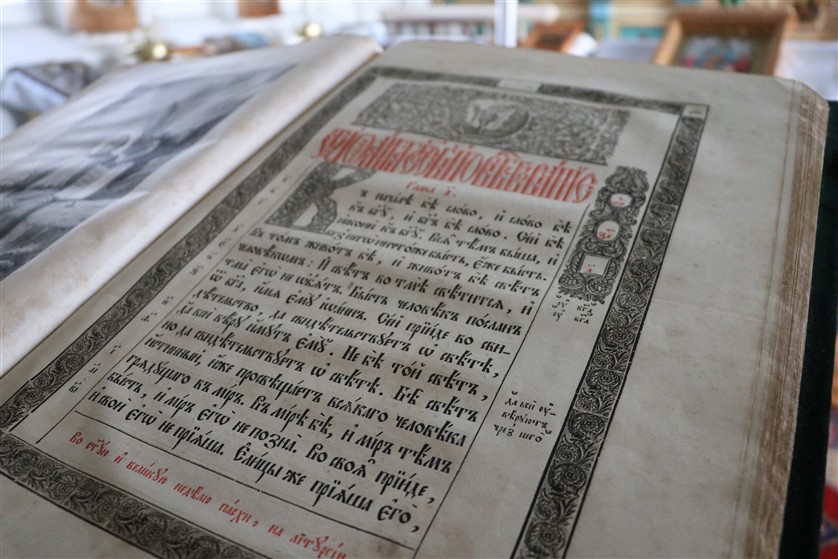 Глава̀ а҃.
Въ нача́лѣ бѣ̀ сло́во, и҆ сло́во бѣ̀
къ бг҃ꙋ, и҆ бг҃ъ бѣ̀ сло́во. Се́й бѣ̀
и҆сконѝ къ бг҃ꙋ. Всѧ̑ тѣ́мъ бы́ша, и҆
без̾ негѡ̀ ничто́же бы́сть, є҆́же бы́сть.
Въ то́мъ живо́тъ бѣ̀, и҆ живо́тъ бѣ̀ свѣ́тъ
человѣ́кѡмъ: И҆ свѣ́тъ во тмѣ̀ свѣ́титсѧ, и҆
тма̀ є҆гѡ̀ не ѡ҆б̾ѧ́тъ. Бы́сть человѣ́къ по́сланъ
ѿ бг҃а, и҆́мѧ є҆мꙋ̀ і҆ѡа́ннъ. Се́й прїи́де во сви-
дѣ́тельство, да свидѣ́тельствꙋетъ ѡ҆ свѣ́тѣ,
да всѝ вѣ́рꙋ и҆́мꙋтъ є҆мꙋ̀. Не бѣ̀ то́й свѣ́тъ,
но да свидѣ́тельствꙋетъ ѡ҆ свѣ́тѣ. Бѣ̀ свѣ́тъ
и҆́стинный, и҆́же просвѣща́етъ всѧ́каго человѣ́ка
грѧдꙋ́щаго въ мі́ръ. Въ мі́рѣ бѣ̀, и҆ мі́ръ тѣ́мъ
бы́сть, и҆ мі́ръ є҆гѡ̀ не позна̀. Во своѧ̑ прїи́де,
и҆ своѝ є҆гѡ̀ не прїѧ́ша. Є҆ли́цы же прїѧ́ша є҆го̀,
да всѝ ᲂу҆-
вѣ́рꙋютъ
чрез̾ него̀
Во ст҃ꙋ́ю и҆ вели́кꙋю недѣ́лю па́схи, на лїтꙋргі́и